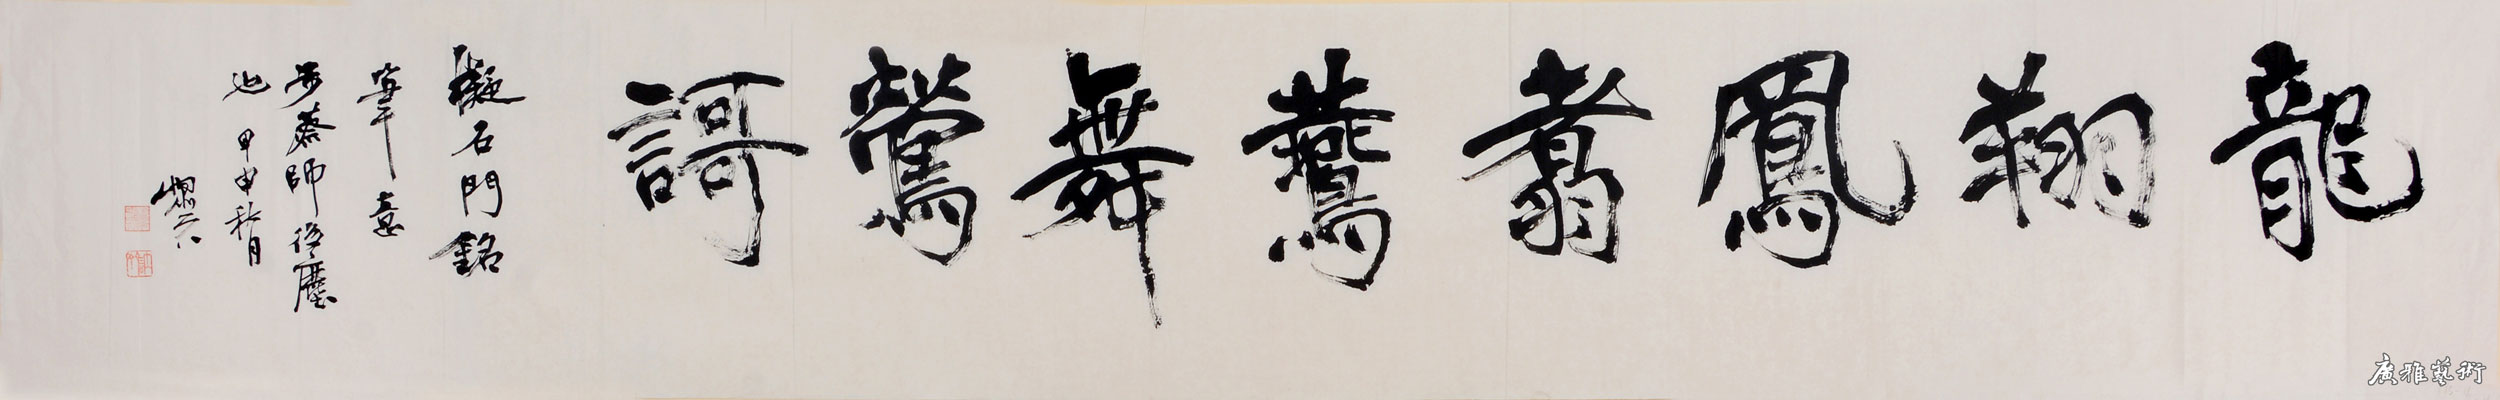 龍翔鳳翥鷰舞鶯謌
擬石門銘
筆意
步蔡師後塵
也 甲申秋月
燦六
廣雅藝術